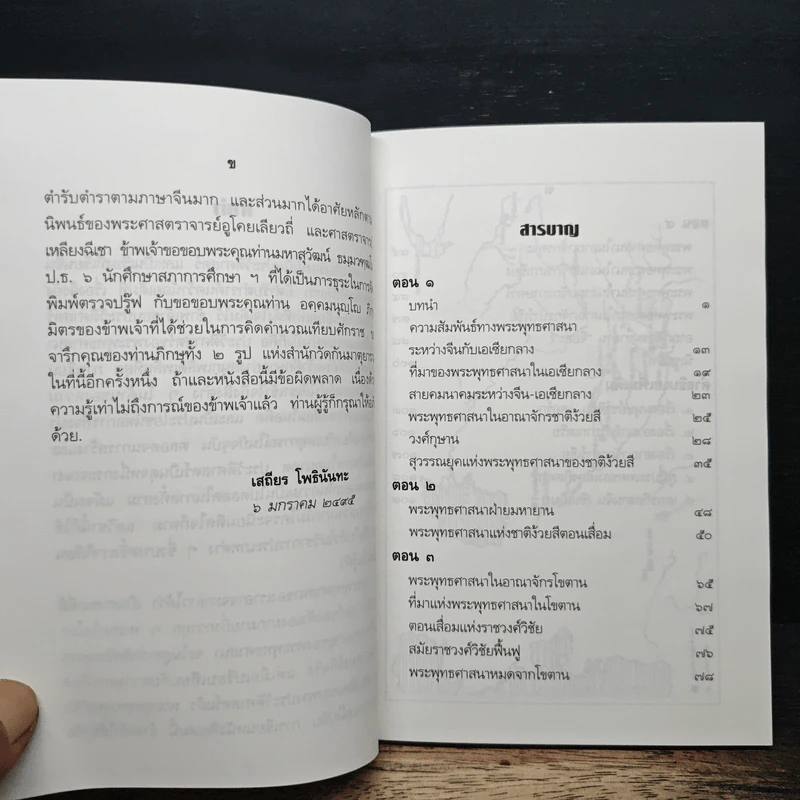 ข
ตำรับตำราตามภาษาจีนมาก และส่วนมากได้อาศัยหลักตาม
นิพนธ์ของพระศาสตราจารย์อูโคยเลียวถี่ และศาสตราจาร
เหลียงฉีเชา ข้าพเจ้าขอขอบพระคุณท่านมหาสุวัฒน์
ป.ธ. ๖ นักศึกษาสภาการศึกษา ฯ ที่ได้เป็นภาระธุระในการ
พิมพ์ตรวจปรู๊ฟ กับขอขอบพระคุณท่าน อคฺคมนุญฺโญ ภิก
มิตรของข้าพเจ้าที่ได้ช่วยในการคิดคำนวณเทียบศักราช
จารึกคุณของท่านภิกษุทั้ง ๒ รูป แห่งสำนักวัดกันมาตุยาร
ในที่นี้อีกครั้งหนึ่ง ถ้าและหนังสือนี้มีข้อผิดพลาด เนื่องด้
ความรู้เท่าไม่ถึงการณ์ของข้าพเจ้าแล้ว ท่านผู้รู้ก็กรุณาให้
ด้วย.
เสถียร โพธินันทะ
๖ มกราคม ๒๔๙๕
สารบาญ
ตอน ๑
บทนำ ๑
ความสัมพันธ์ทางพระพุทธศาสนา
ระหว่างจีนกับเอเซียกลาง ๑๓
ที่มาของพระพุทธศาสนาในเอเซียกลาง ๑๙
สายคมนาคมระหว่างจีน-เอเซียกลาง ๒๓
พระพุทธศาสนาในอาณาจักรชาติง้วยสี ๒๕
วงศ์กุษาน ๒๘
สุวรรณยุคแห่งพระพุทธศาสนาของชาติง้วยสี ๓๕
ตอน ๒
พระพุทธศาสนาฝ่ายมหายาน ๔๘
พระพุทธศาสนาแห่งชาติง้วยสีตอนเสื่อม ๕๐
ตอน ๓
พระพุทธศาสนาในอาณาจักรโขตาน ๖๕
ที่มาแห่งพระพุทธศาสนาในโขตาน ๖๗
ตอนเสื่อมแห่งราชวงศ์วิชัย ๗๕
สมัยราชวงศ์วิชัยฟื้นฟู ๗๖
พระพุทธศาสนาหมดจากโขตาน ๗๘